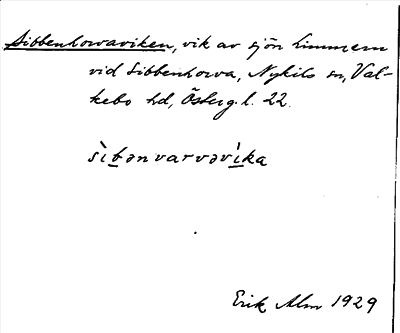 Sibbenhorvaviken, vik av sjön Limmern
vid Sibbenhorva, Nykils sn, Val-
kebo hd, Österg. l. 22.
sìbənvarvəvìka
Erik Alm 1929